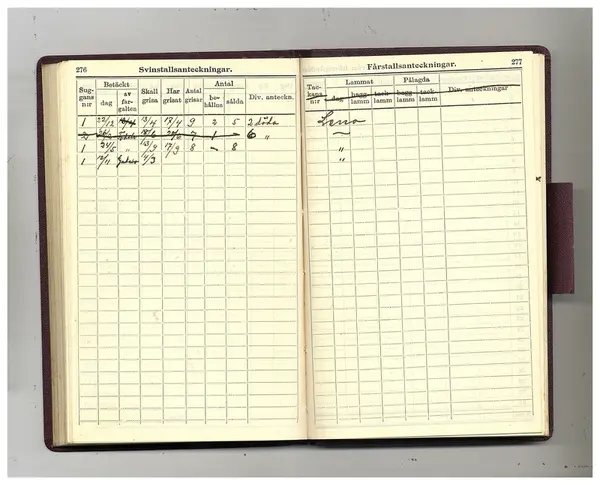 276 Svinstallsanteckningar.
Sug-
gans
n:r
Betäckt
dag
av
far-
galten
Skall
grisa
Har
grisat
Antal
grisar
Antal
be-
hållna
sålda
Div. anteckn.
1 22/12 13/4 12/4 9 2 5 2 döda
7 1 6 "
1 24/5 " 13/9 17/9 8 - 8
1 12/11 11/3
Fårstallsanteckningar. 277
Tac-
kans
n:r
Lammat
dag
bagg-
lamm
tack-
lamm
Pålagda
bagg-
lamm
tack-
lamm
Div. anteckningar
Lena
~
"
"